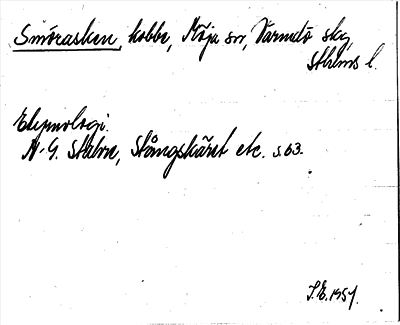 Smörasken, kobbe, Möja sn, Värmdö skg,
Sthlms l.
Etymologi.
N.G. Stahre, Stångskäret etc. s. 63.
S.E. 1957.